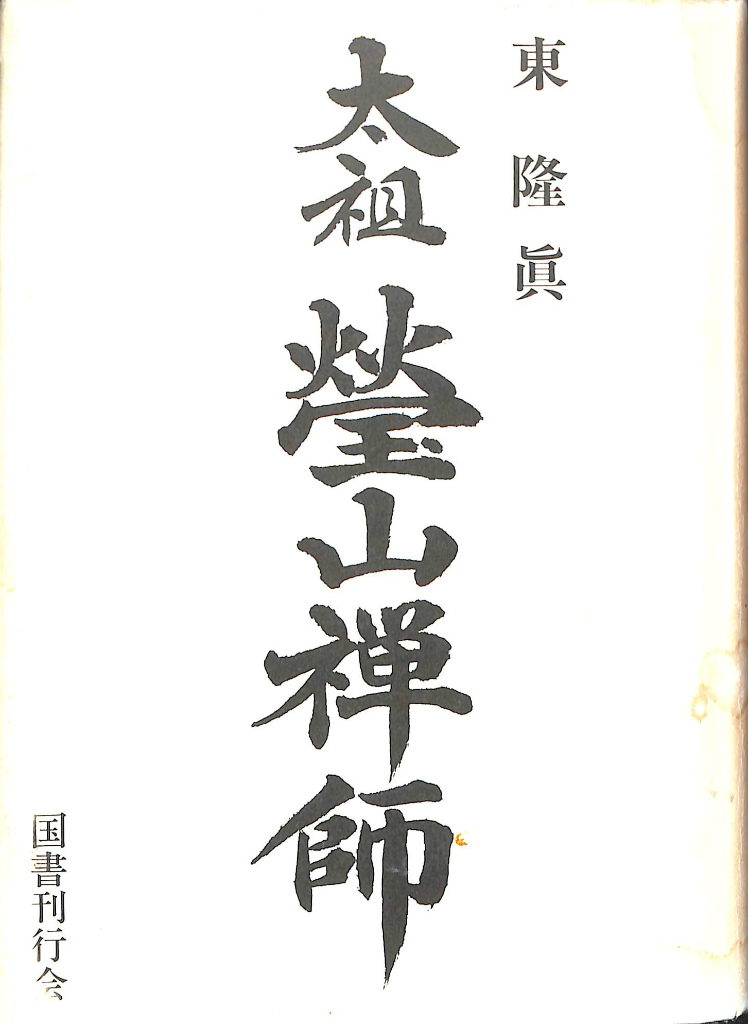 東 隆 眞
太祖 瑩山禅師
国書刊行会